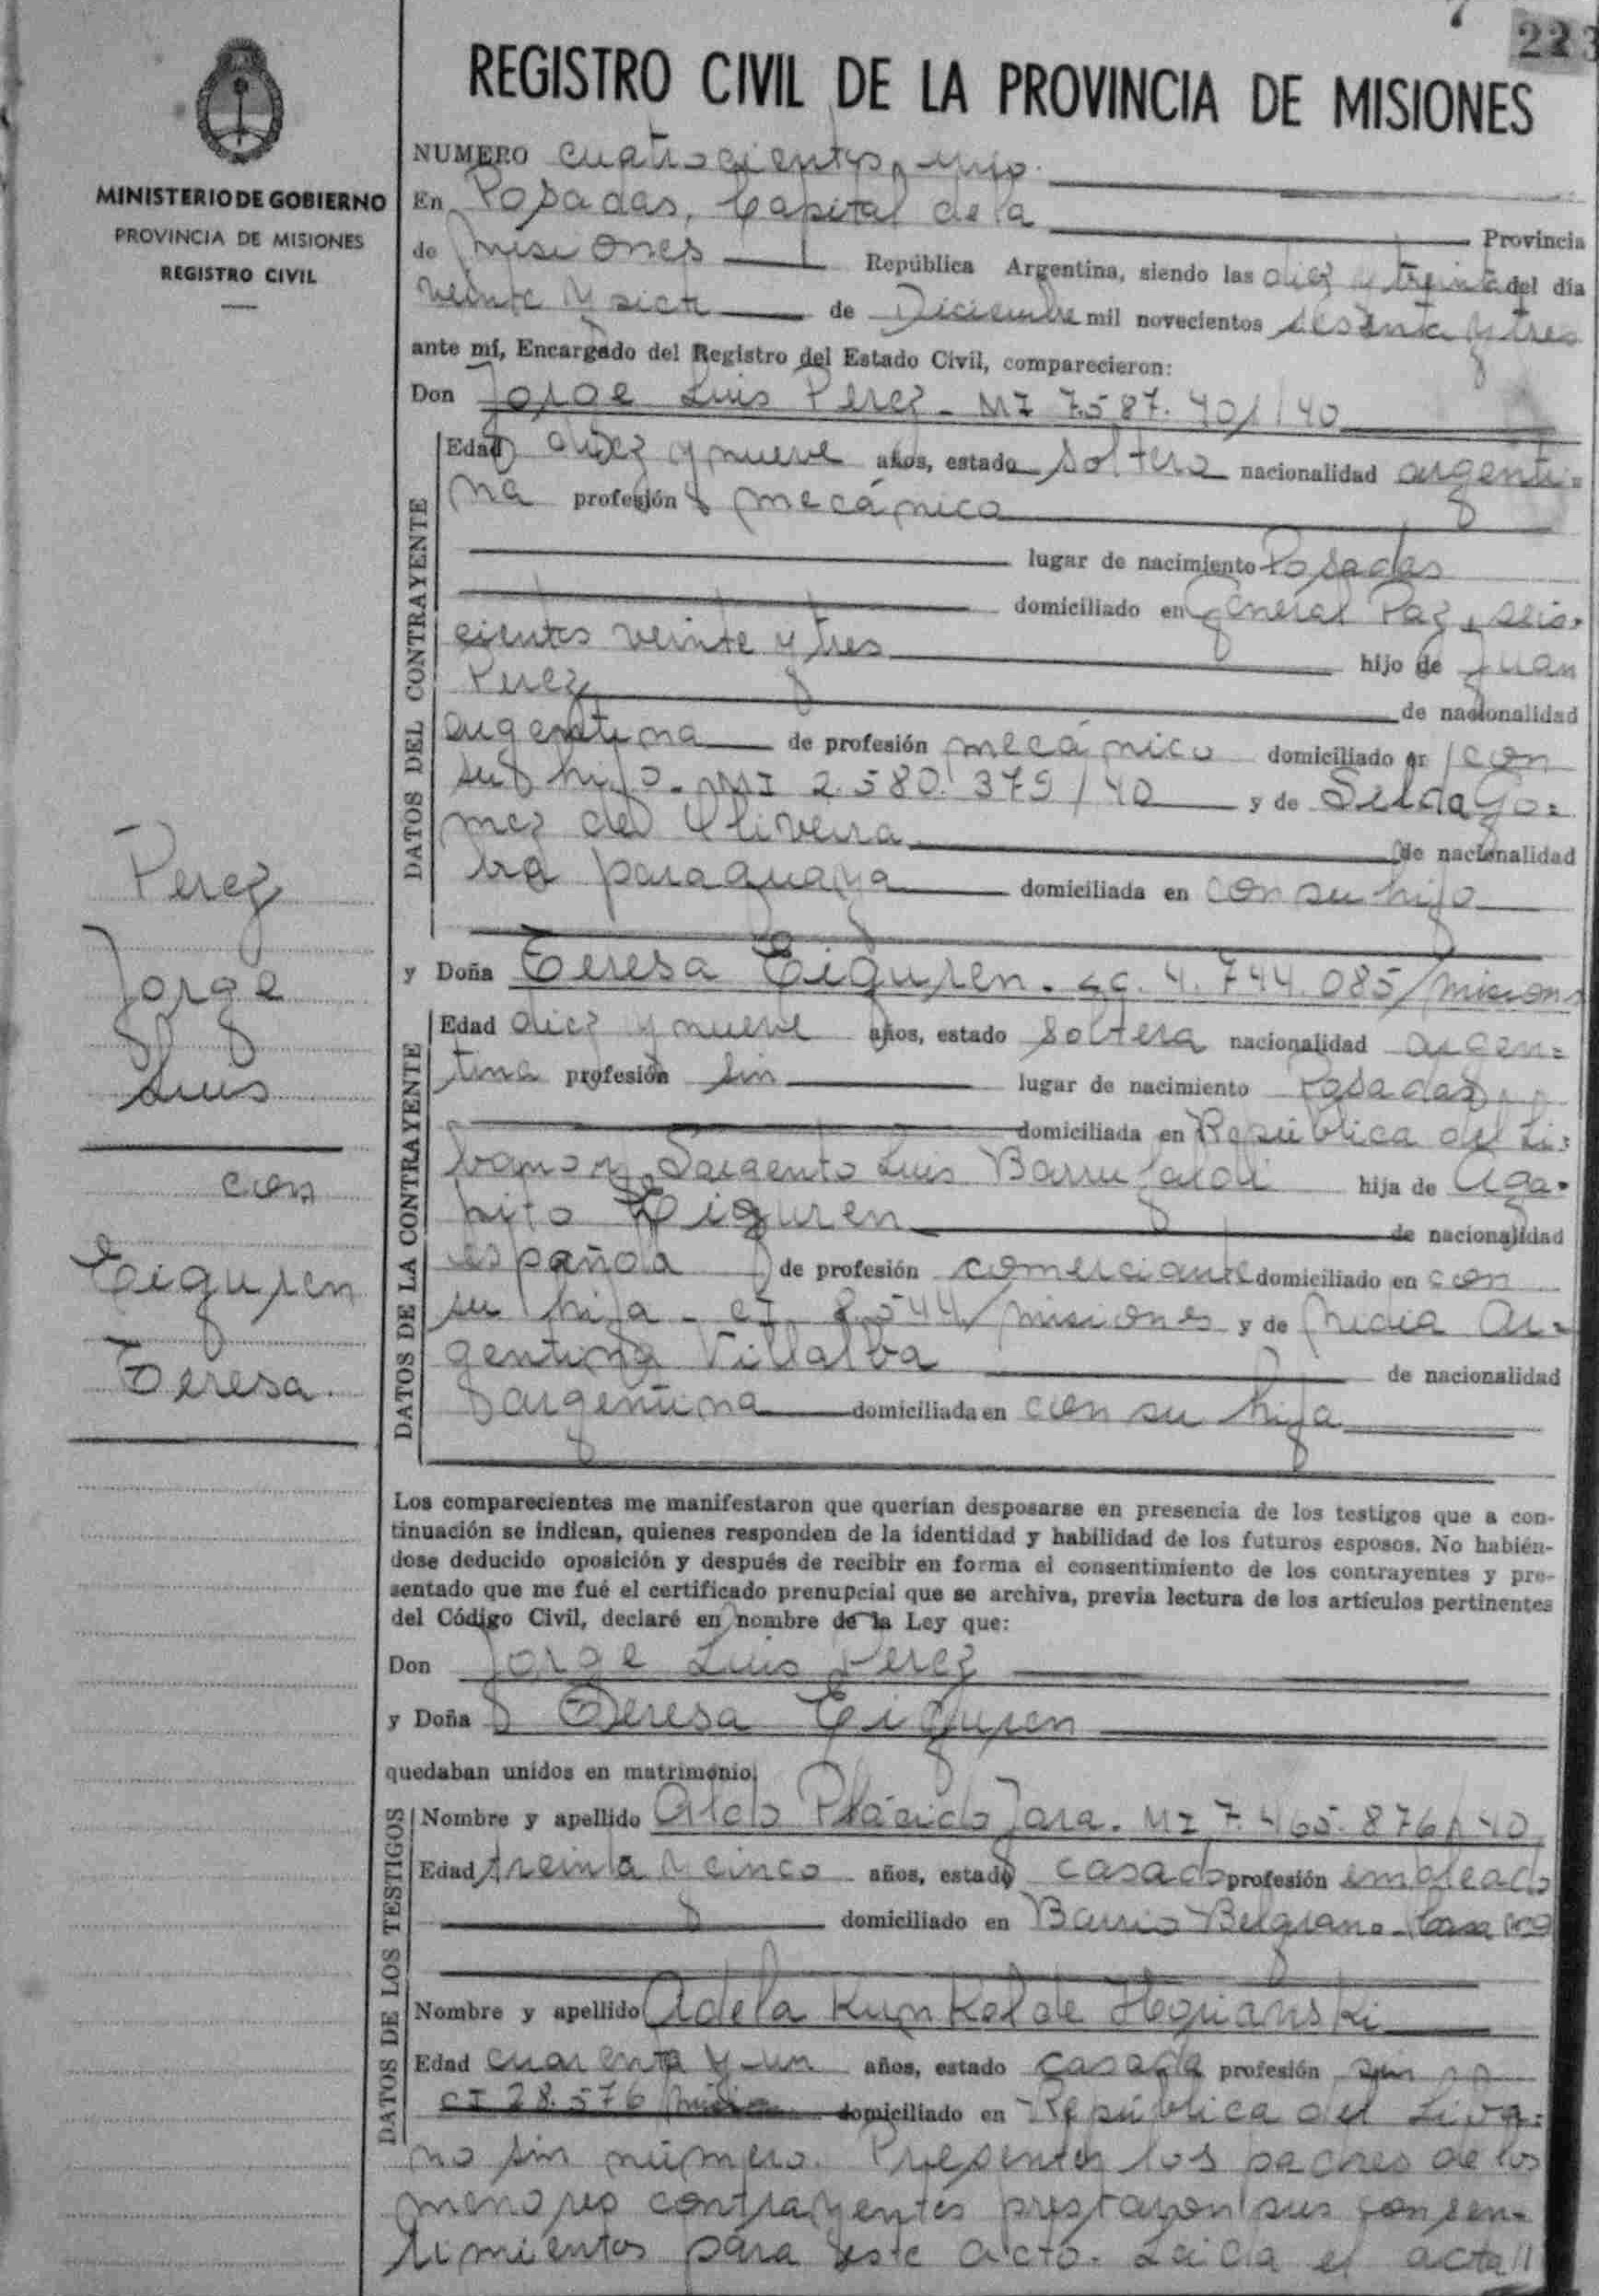 223
REGISTRO CIVIL DE LA PROVINCIA DE MISIONES
MINISTERIO DE GOBIERNO
PROVINCIA DE MISIONES
REGISTRO CIVIL
NUMERO cuatrocientos uno.
En Posadas, Capital de la Provincia
de Misiones República Argentina, siendo las diez y treinta del día
veinte y siete de Diciembre mil novecientos sesenta y tres
ante mí, Encargado del Registro del Estado Civil, comparecieron:
Don Jorge Luis Perez - MI 7.587.401/40
DATOS DEL CONTRAYENTE
Edad diez y nueve años, estado soltero nacionalidad argenti=
na profesión mecánico
lugar de nacimiento Posadas
domiciliado en General Paz, seis=
cientos veinte y tres hijo de Juan
Perez de nacionalidad
argentina de profesión mecánico domiciliado en con
su hijo - MI 2.580.379/40 y de Selda Go=
mez de Oliveira de nacionalidad
paraguaya domiciliada en con su hijo
Perez
Jorge
Luis
con
Eiguren
Teresa.
y Doña Teresa Eiguren. LC. 4.744.085/misiones
DATOS DE LA CONTRAYENTE
Edad diez y nueve años, estado soltera nacionalidad argen=
tina profesión sin lugar de nacimiento Posadas
domiciliada en República del Lí=
bano y Sargento Luis Barrufaldi hija de Aga=
pito Eiguren de nacionalidad
española de profesión comerciante domiciliado en con
su hija - CI 8.544/misiones y de Nidia Ar=
gentina Villalba de nacionalidad
argentina domiciliada en con su hija
Los comparecientes me manifestaron que querían desposarse en presencia de los testigos que a con-
tinuación se indican, quienes responden de la identidad y habilidad de los futuros esposos. No habién-
dose deducido oposición y después de recibir en forma el consentimiento de los contrayentes y pre-
sentado que me fué el certificado prenupcial que se archiva, previa lectura de los artículos pertinentes
del Código Civil, declaré en nombre de la Ley que:
Don Jorge Luis Perez
y Doña Teresa Eiguren
quedaban unidos en matrimonio.
DATOS DE LOS TESTIGOS
Nombre y apellido Aldo Plácido Jara. MI 7.465.876/40
Edad treinta y cinco años, estado casado profesión empleado
domiciliado en Barrio Belgrano - Casa
Nombre y apellido Adela Kunkel de
Edad cuarenta y un años, estado casada profesión sin
CI 28.576 domiciliado en República del Liba=
no sin número. Presentes los padres de los
menores contrayentes prestaron sus consen=
timientos para este acto. Leída el acta //